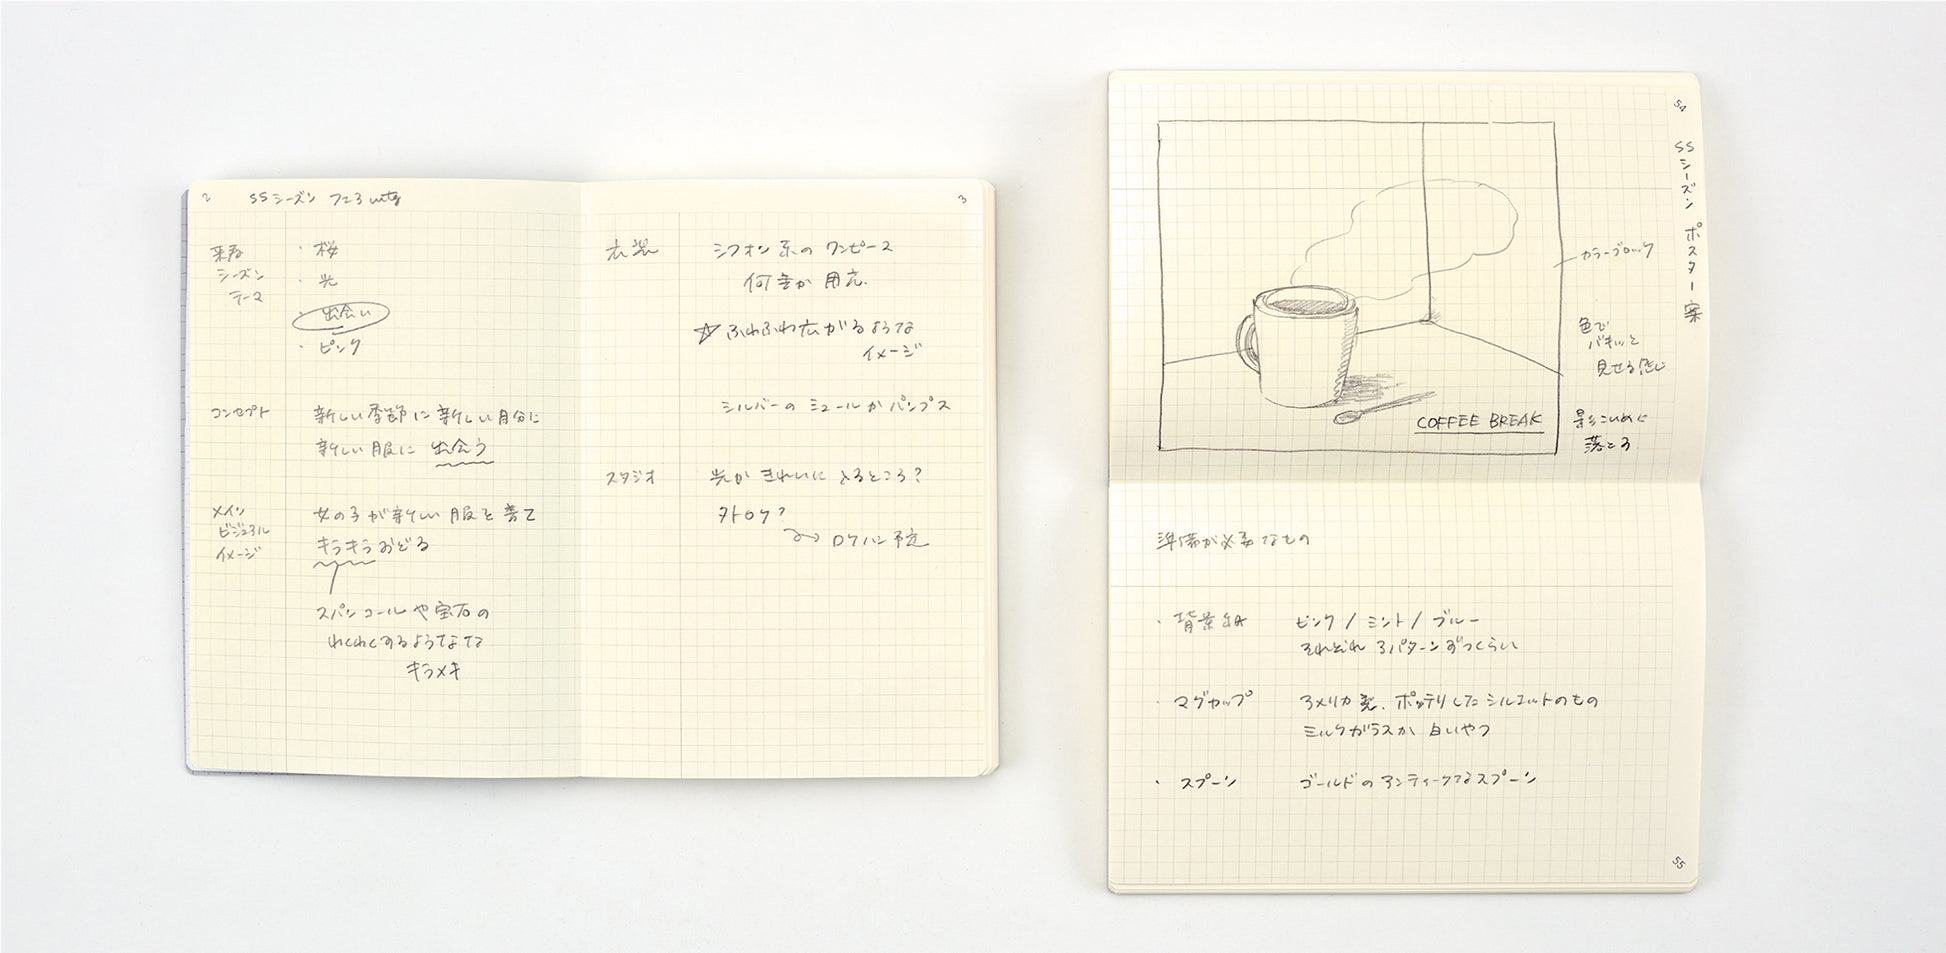 2
SSシーズン フェア mtg
来春
シーズン
テーマ
・桜
・光
・出会い
・ピンク
コンセプト
新しい季節に新しい自分に
新しい服に 出会う
メイン
ビジュアル
イメージ
女の子が新しい服を着て
キラキラおどる
スパンコールや宝石の
わくわくするような
キラメキ
3
衣装
シフォン系のワンピース
何着か用意.
☆ふわふわ広がるような
イメージ
シルバーのミュールかパンプス
スタジオ
光がきれいに とるところ?
外ロケ?
→ロケハン予定
54
SSシーズン ポスター案
カラーブロック
色で
パキッと
見せる感じ
影こいめに
落とる
COFFEE BREAK
準備が必要なもの
・背景紙
ピンク / ミント / ブルー
それぞれ 3パターンずつくらい
・マグカップ
アメリカ発. ポッテリしたシルエットのもの
ミルクガラスか 白いやつ
・スプーン
ゴールドのアンティークなスプーン
55